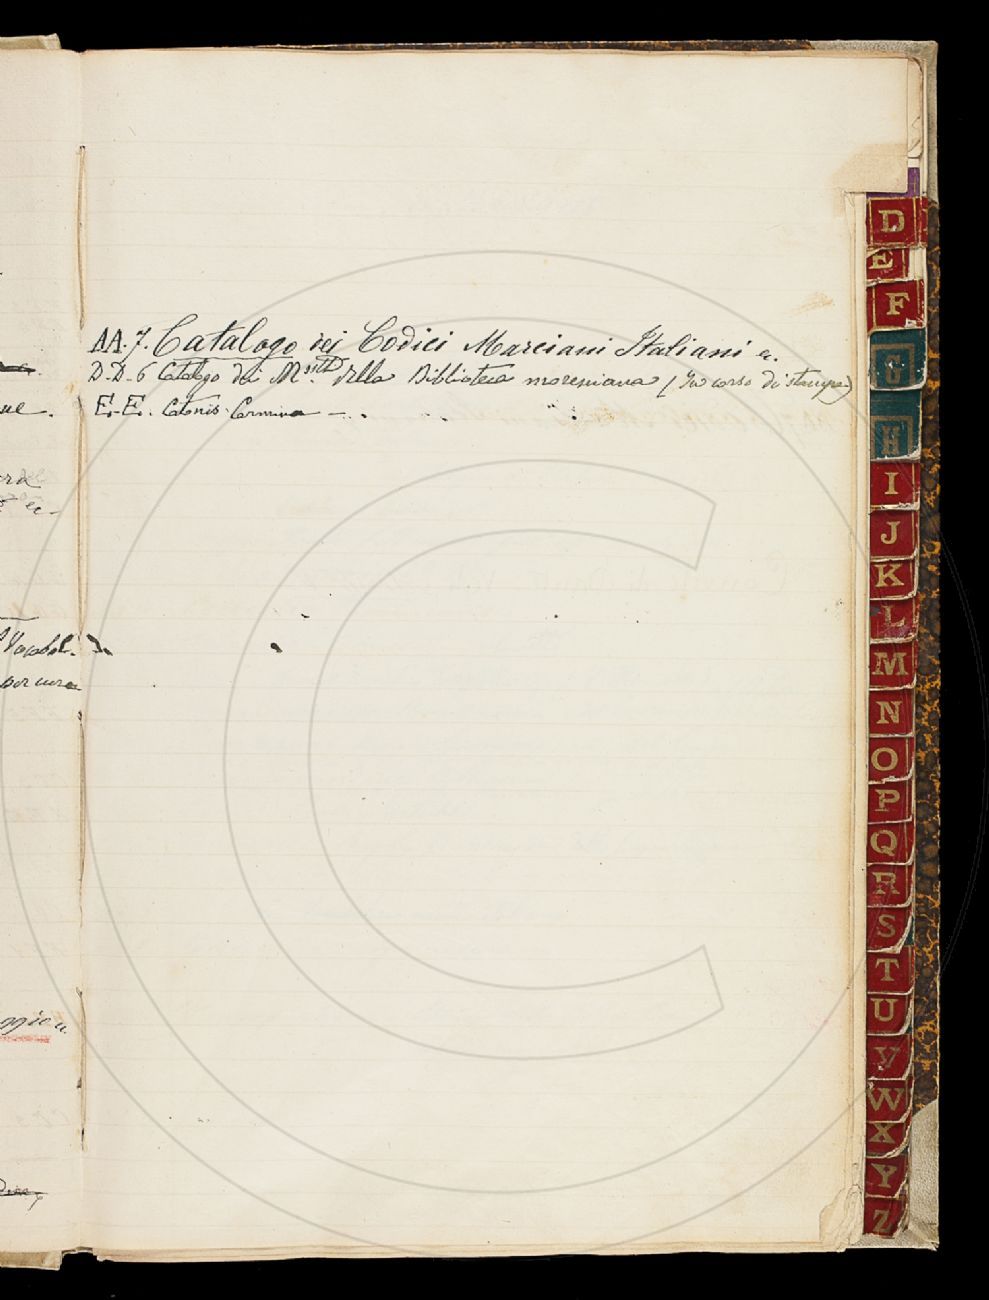 AA. 7. Catalogo dei Codici Marciani Italiani a.
D.D. 6 Catalogo dei M.ssti della Biblioteca moreniana (In corso di stampa)
E. E. Catonis Carmina — .
ue.
Vocabol.
per cura
ggio u
D
E
F
G
H
I
J
K
L
M
N
O
P
Q
R
S
T
U
V
W
X
Y
Z